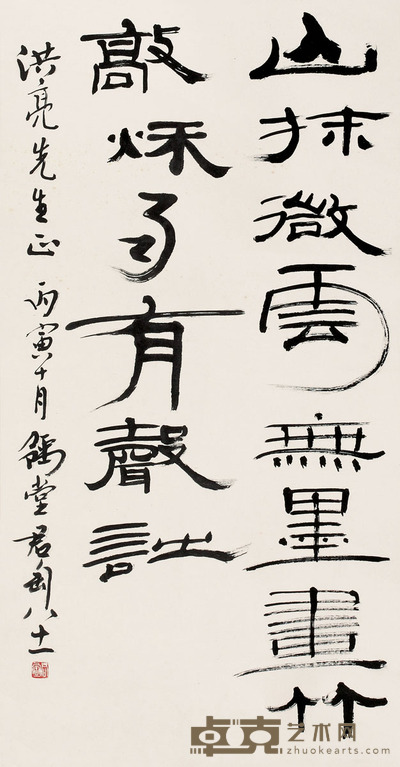 山抹微雲無墨畫竹
敲秋月有聲詩
洪亮先生正 丙寅十月 豫堂君匋八十一
卓克艺术网
zhuokearts.com